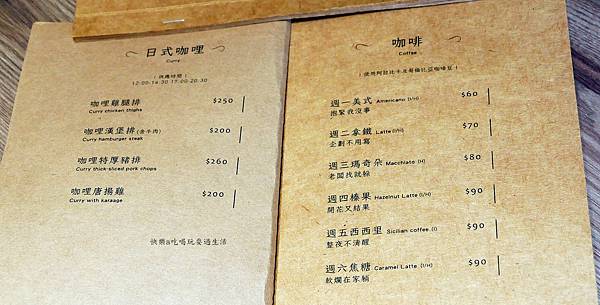 日式咖哩
Curry
（供應時間）
12:00-14:30 17:00-20:30
咖哩雞腿排 $250
Curry chicken thighs
咖哩漢堡排(含牛肉) $200
Curry hamburger steak
咖哩特厚豬排 $260
Curry thick-sliced pork chops
咖哩唐揚雞 $200
Curry with karaage
快樂a吃喝玩耍過生活
咖啡
Coffee
（使用阿拉比卡及哥倫比亞咖啡豆）
週一美式 Americano (I/H) $60
抱緊我沒事
週二拿鐵 Latte (I/H) $70
企劃不用寫
週三瑪奇朵 Macchiato (H) $80
老闆找就躲
週四榛果 Hazelnut Latte (I/H) $90
開花又結果
週五西西里 Sicilian coffee (I) $90
整夜不清醒
週六焦糖 Caramel Latte (I/H) $90
軟爛在家躺